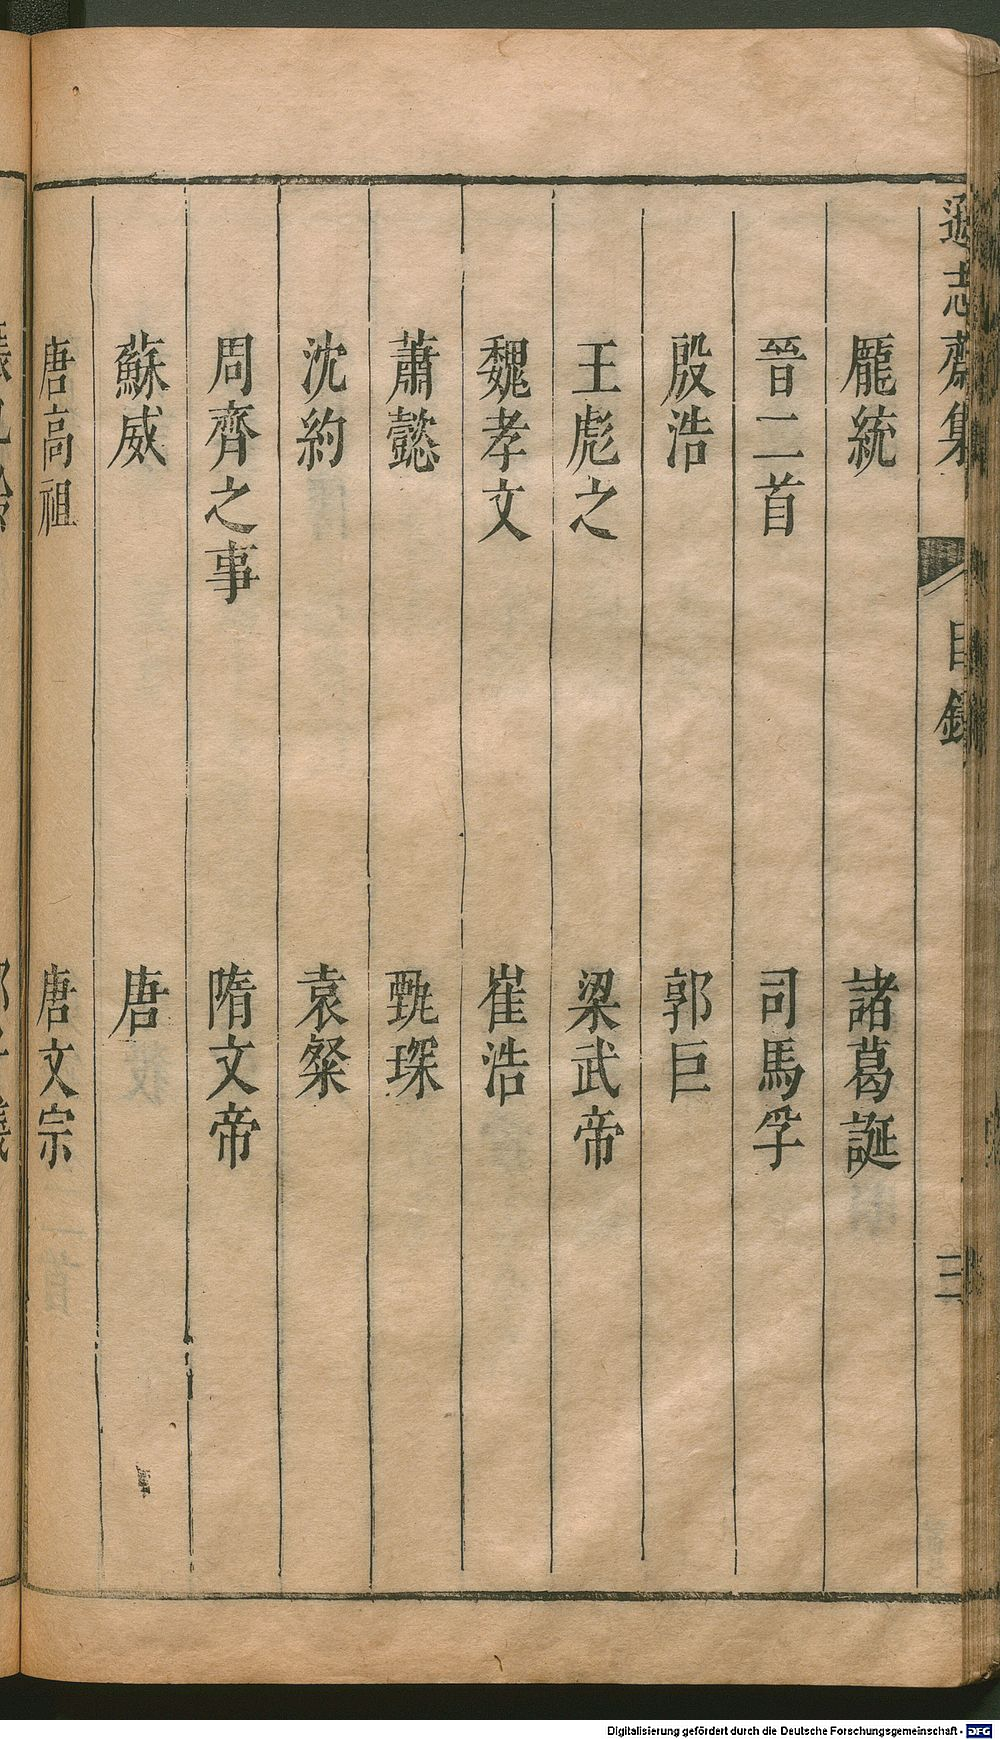 遜志齋集 目錄 三
龐統 諸葛誕
晉二首 司馬孚
殷浩 郭巨
王彪之 梁武帝
魏孝文 崔浩
蕭懿 甄琛
沈約 袁粲
周齊之事 隋文帝
蘇威 唐
唐高祖 唐文宗
Digitalisierung gefördert durch die Deutsche Forschungsgemeinschaft - DFG